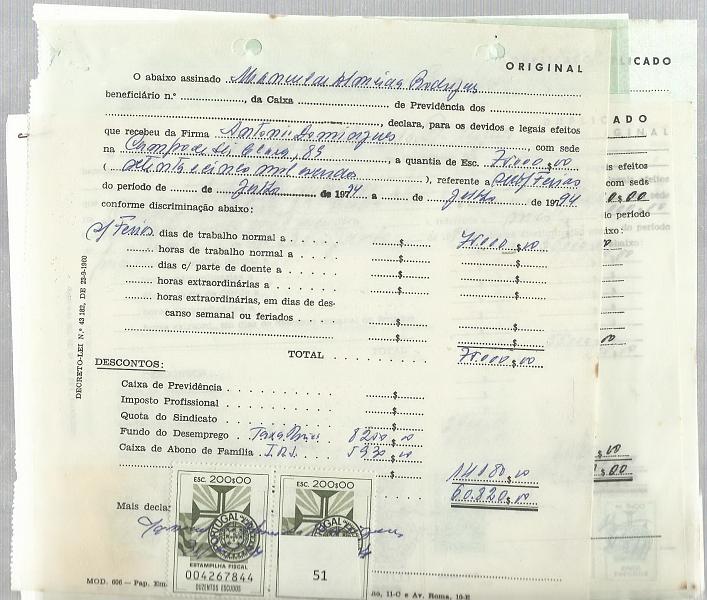 ORIGINAL
O abaixo assinado Manuel de Almeida Rodrigues
beneficiário n.º ............, da Caixa .............. de Previdência dos ..............
.............., declara, para os devidos e legais efeitos
que recebeu da Firma Antonio Domingues, com sede
na Campo de Sta Clara, 83, a quantia de Esc. 75.000$00
( Setenta e cinco mil escudos ), referente a Subs/ Ferias
do período de ........ de Julho de 1994 a ........ de Julho de 1994
conforme discriminação abaixo:
s/ Férias dias de trabalho normal a . . . . . . $ 75.000$00
........ horas de trabalho normal a . . . . . . $ $
........ dias c/ parte de doente a . . . . . . $ $
........ horas extraordinárias a . . . . . . $ $
........ horas extraordinárias, em dias de des-
canso semanal ou feriados . . . . . $ $
$ $
TOTAL . . . . . . . . . 75.000$00
DESCONTOS:
Caixa de Previdência . . . . . . . . . $
Imposto Profissional . . . . . . . . . $
Quota do Sindicato . . . . . . . . . $
Fundo do Desemprego . Taxa 8250$00
Caixa de Abono de Família I.R.S. 5930$00
$ 14180$00
60.820$00
Mais decla
ESC. 200$00
ESC. 200$00
PORTUGAL
PORTUGAL
ESTAMPILHA FISCAL
004267844
DUZENTOS ESCUDOS
51
MOD. 606 — Pap. Em
11-C e Av. Roma, 10-E
DECRETO-LEI N.º 43 182, DE 23-9-1960
PLICADO
CADO
GINAL
is efeitos
com sede
$00
período
ixo:
$00
$00